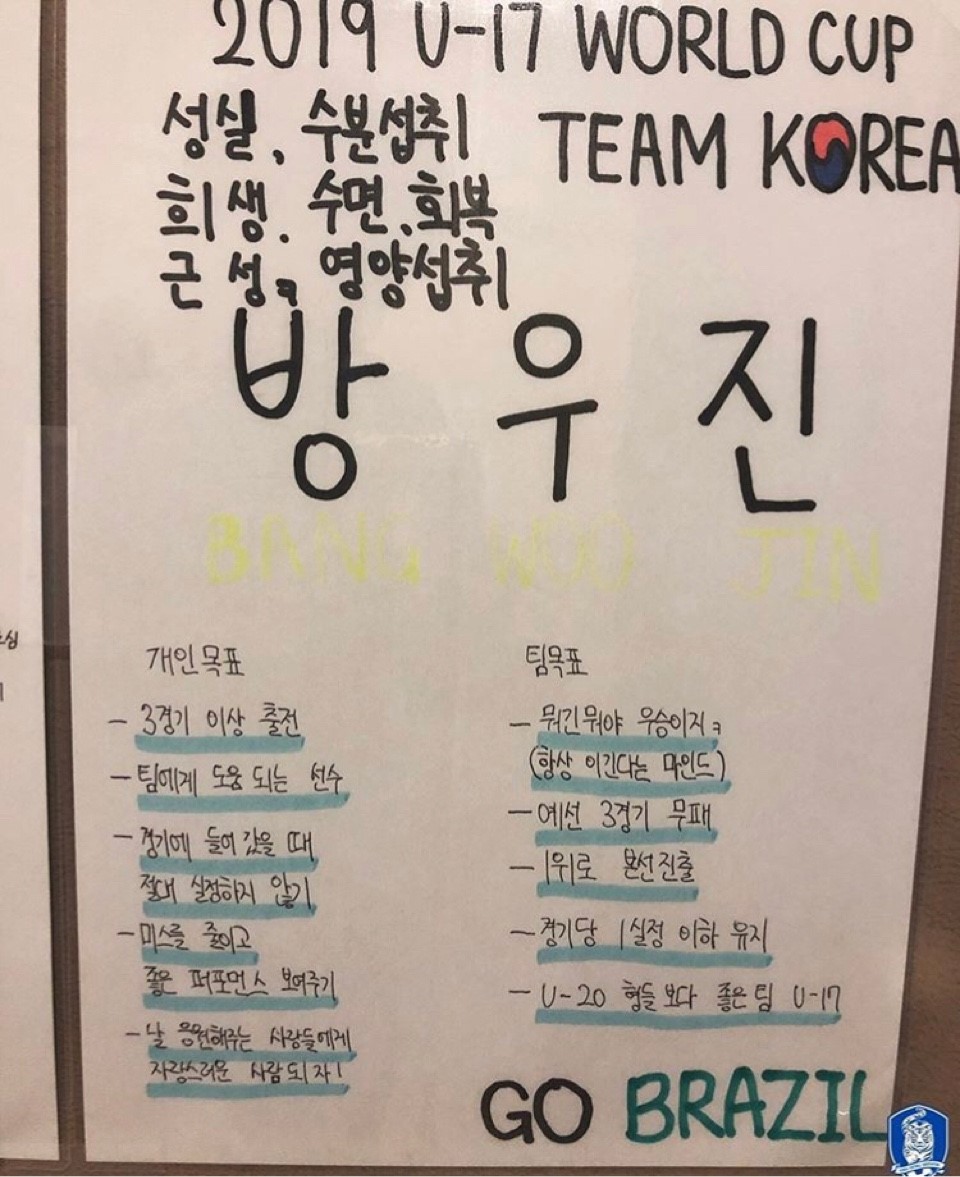 2019 U-17 WORLD CUP
TEAM KOREA
성실, 수분섭취
희생. 수면.회복
근성, 영양섭취
방우진
BANG WOO JIN
개인목표
- 3경기 이상 출전
- 팀에게 도움 되는 선수
- 경기에 들어갔을 때
절대 실점하지 않기
- 미스를 줄이고
좋은 퍼포먼스 보여주기
- 날 응원해주는 사람들에게
자랑스러운 사람되자!
팀목표
- 뭐긴뭐야 우승이지ㅋ
(항상 이긴다는 마인드)
- 예선 3경기 무패
- 1위로 본선진출
- 경기당 1실점 이하 유지
- U-20 형들보다 좋은팀 U-17
GO BRAZIL